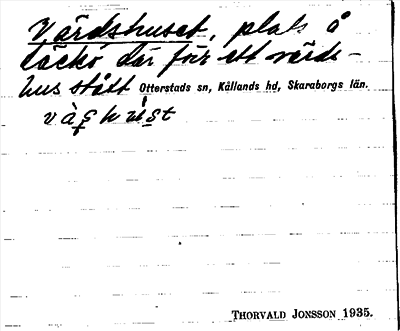 Värdshuset, plats å
Läckö där förr ett värds-
hus stått Otterstads sn, Kållands hd, Skaraborgs län.
THORVALD JONSSON 1935.